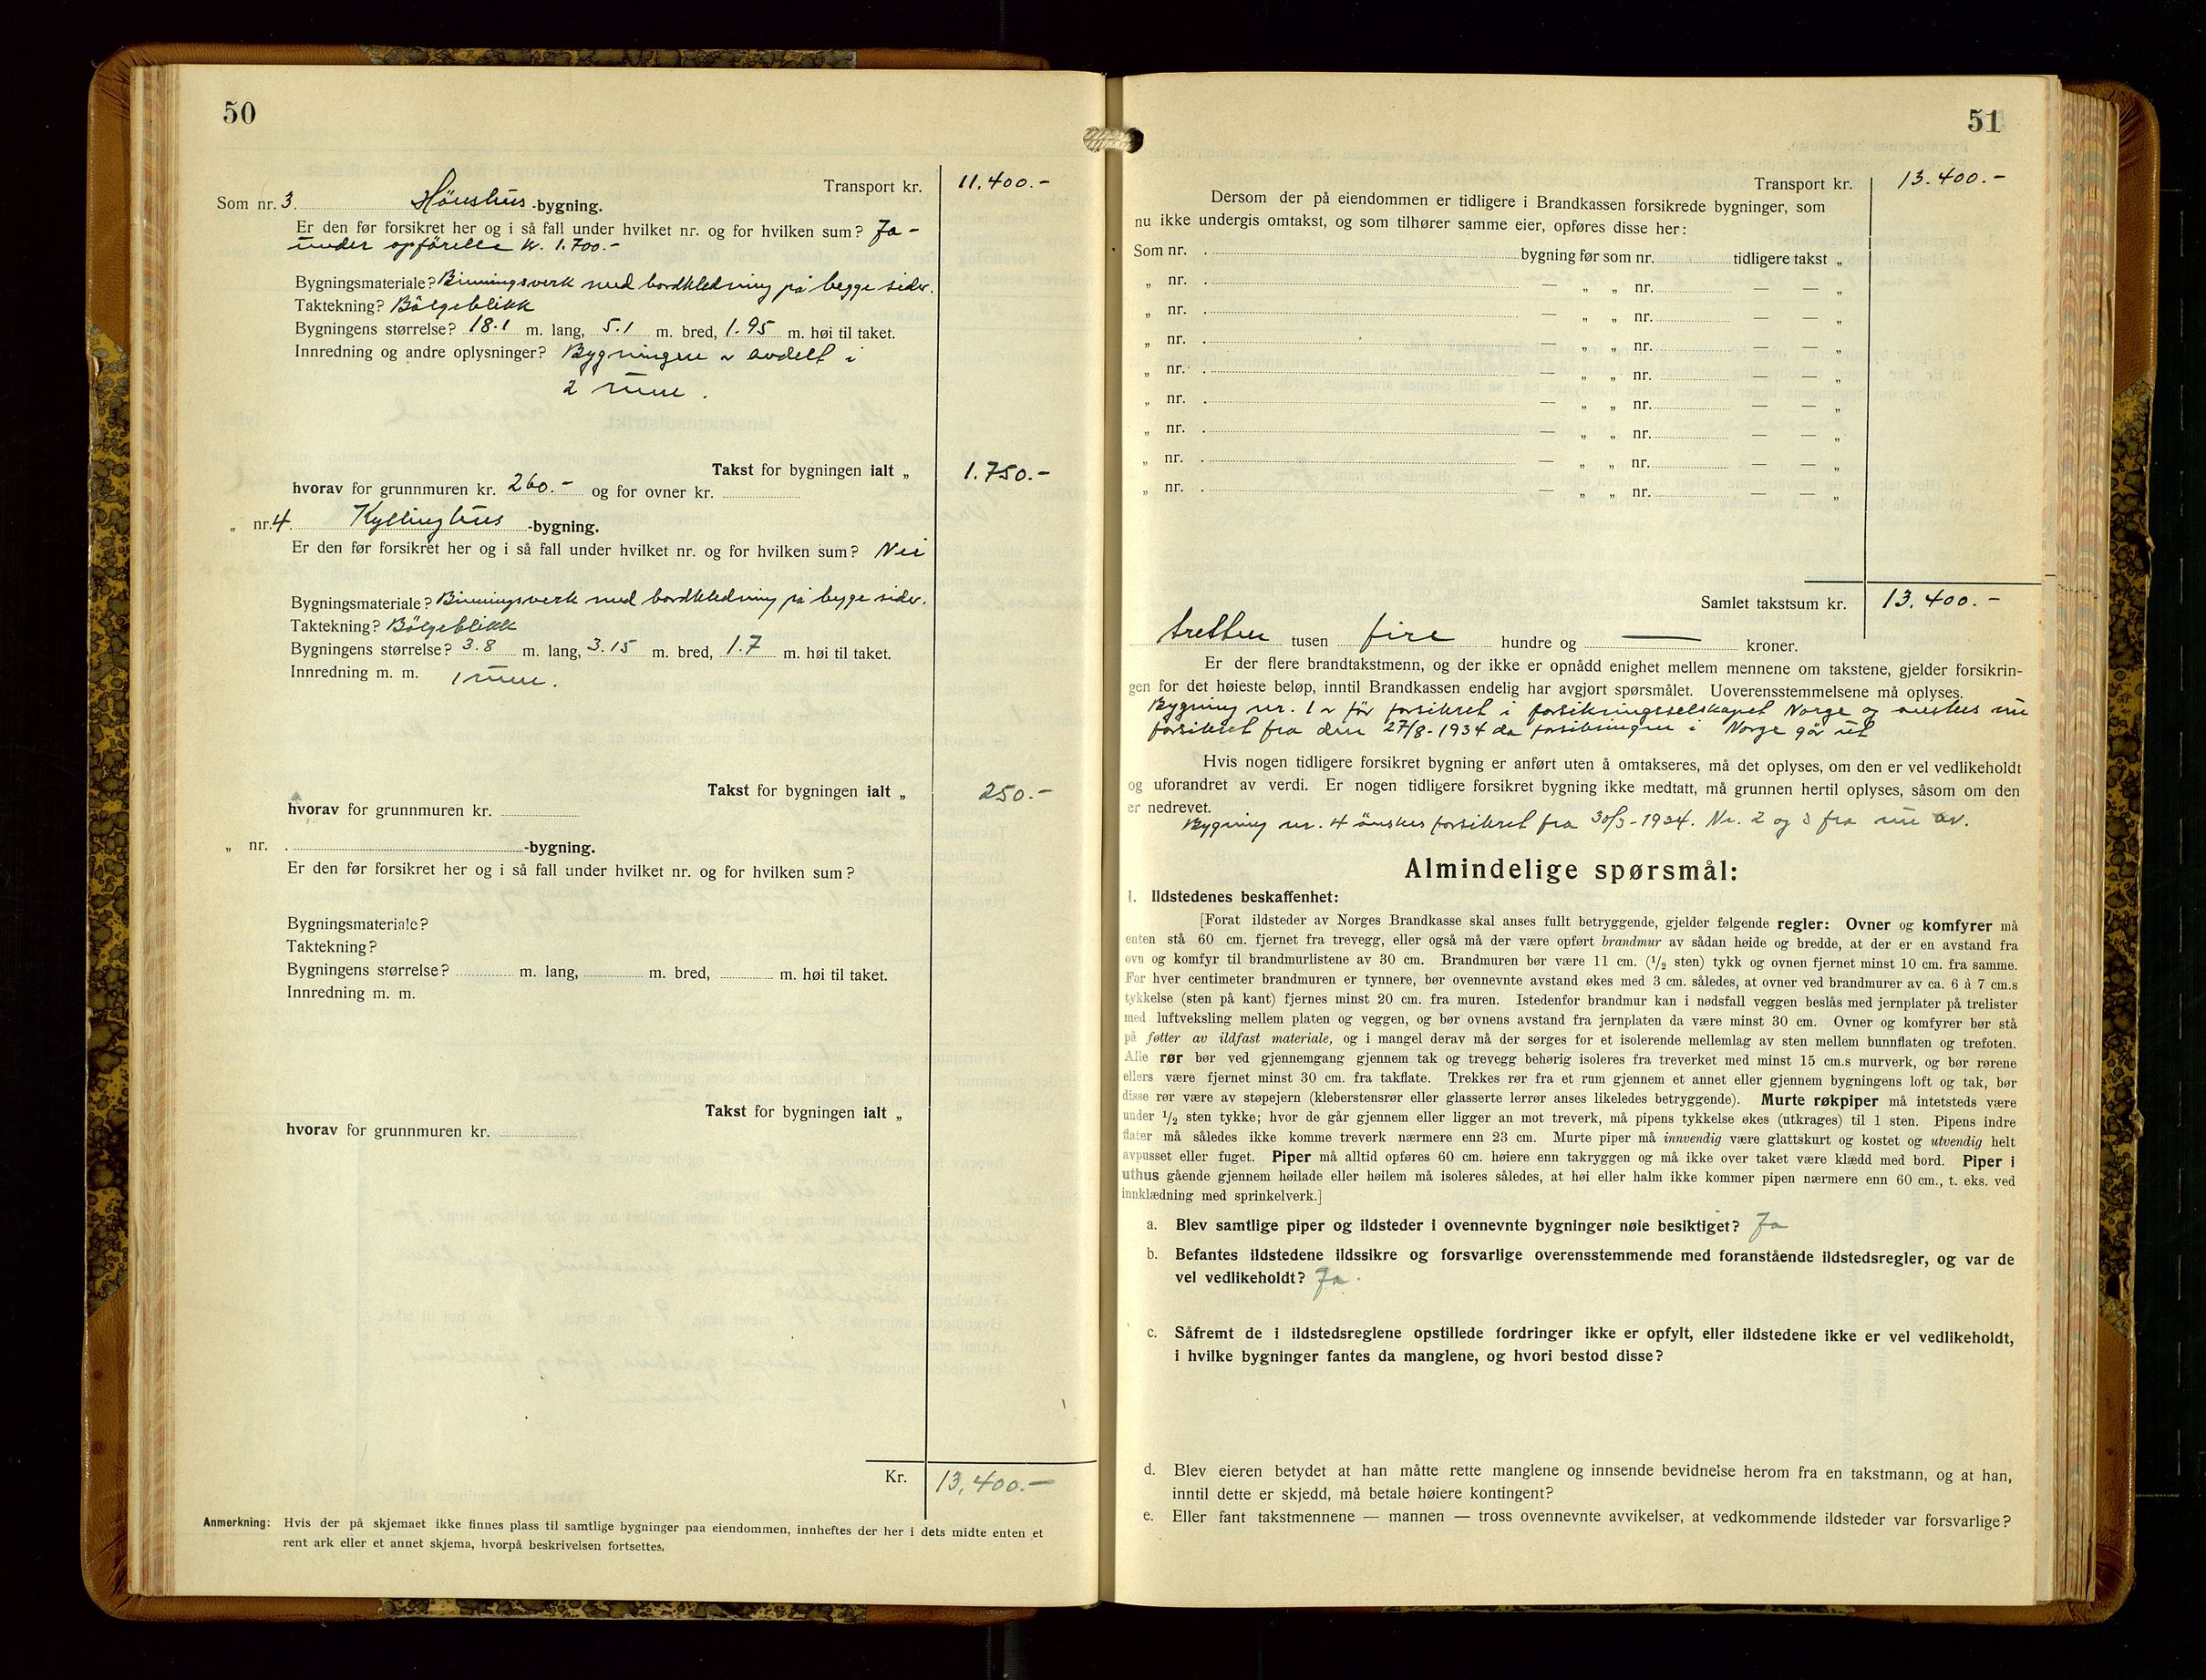 50
Transport kr. 11.400.-
Som nr. 3. Hønshus -bygning.
Er den før forsikret her og i så fall under hvilket nr. og for hvilken sum? Ja -
under opførelse kr. 1.700.-
Bygningsmateriale? Binningsverk med bordkledning på begge sider.
Taktekning? Bölgeblikk
Bygningens størrelse? 18.1 m. lang, 5.1 m. bred, 1.95 m. høi til taket.
Innredning og andre oplysninger? Bygningen er avdelt i
2 rum.
Takst for bygningen ialt „ 1.750.-
hvorav for grunnmuren kr. 260.- og for ovner kr.
„ nr. 4. Kyllinghus -bygning.
Er den før forsikret her og i så fall under hvilket nr. og for hvilken sum? Nei
Bygningsmateriale? Binningsverk med bordkledning på begge sider.
Taktekning? Bölgeblikk
Bygningens størrelse? 3.8 m. lang, 3.15 m. bred, 1.7 m. høi til taket.
Innredning m. m. 1 rum.
Takst for bygningen ialt „ 250.-
hvorav for grunnmuren kr.
„ nr. . -bygning.
Er den før forsikret her og i så fall under hvilket nr. og for hvilken sum?
Bygningsmateriale?
Taktekning?
Bygningens størrelse? m. lang, m. bred, m. høi til taket.
Innredning m. m.
Takst for bygningen ialt „
hvorav for grunnmuren kr.
Kr. 13,400.-
Anmerkning: Hvis der på skjemaet ikke finnes plass til samtlige bygninger paa eiendommen, innheftes der her i dets midte enten et
rent ark eller et annet skjema, hvorpå beskrivelsen fortsettes.
51
Transport kr. 13.400.-
Dersom der på eiendommen er tidligere i Brandkassen forsikrede bygninger, som
nu ikke undergis omtakst, og som tilhører samme eier, opføres disse her:
Som nr. . bygning før som nr. tidligere takst „
„ nr. . — „ „ nr. — — „
„ nr. . — „ „ nr. — — „
„ nr. . — „ „ nr. — — „
„ nr. . — „ „ nr. — — „
„ nr. . — „ „ nr. — — „
„ nr. . — „ „ nr. — — „
„ nr. . — „ „ nr. — — „
„ nr. . — „ „ nr. — — „
Samlet takstsum kr. 13.400.-
tretten tusen fire hundre og — kroner.
Er der flere brandtakstmenn, og der ikke er opnådd enighet mellem mennene om takstene, gjelder forsikrin-
gen for det høieste beløp, inntil Brandkassen endelig har avgjort spørsmålet. Uoverensstemmelsene må oplyses.
Bygning nr. 1 er før forsikret i forsikringsselskapet Norge og ønskes nu
forsikret fra den 27/8-1934 da forsikringen i Norge går ut
Hvis nogen tidligere forsikret bygning er anført uten å omtakseres, må det oplyses, om den er vel vedlikeholdt
og uforandret av verdi. Er nogen tidligere forsikret bygning ikke medtatt, må grunnen hertil oplyses, såsom om den
er nedrevet.
Bygning nr. 4 ønskes forsikret fra 30/3-1934. Nr. 2 og 3 fra nu av.
Almindelige spørsmål:
1. Ildstedenes beskaffenhet:
[Forat ildsteder av Norges Brandkasse skal anses fullt betryggende, gjelder følgende regler: Ovner og komfyrer må
enten stå 60 cm. fjernet fra trevegg, eller også må der være opført brandmur av sådan høide og bredde, at der er en avstand fra
ovn og komfyr til brandmurlistene av 30 cm. Brandmuren bør være 11 cm. (1/2 sten) tykk og ovnen fjernet minst 10 cm. fra samme.
For hver centimeter brandmuren er tynnere, bør ovennevnte avstand økes med 3 cm. således, at ovner ved brandmurer av ca. 6 à 7 cm.s
tykkelse (sten på kant) fjernes minst 20 cm. fra muren. Istedenfor brandmur kan i nødsfall veggen beslås med jernplater på trelister
med luftveksling mellem platen og veggen, og bør ovnens avstand fra jernplaten da være minst 30 cm. Ovner og komfyrer bør stå
på føtter av ildfast materiale, og i mangel derav må der sørges for et isolerende mellemlag av sten mellem bunnflaten og trefoten.
Alle rør bør ved gjennemgang gjennem tak og trevegg behørig isoleres fra treverket med minst 15 cm.s murverk, og bør rørene
ellers være fjernet minst 30 cm. fra takflate. Trekkes rør fra et rum gjennem et annet eller gjennem bygningens loft og tak, bør
disse rør være av støpejern (kleberstensrør eller glasserte lerrør anses likeledes betryggende). Murte røkpiper må intetsteds være
under 1/2 sten tykke; hvor de går gjennem eller ligger an mot treverk, må pipens tykkelse økes (utkrages) til 1 sten. Pipens indre
flater må således ikke komme treverk nærmere enn 23 cm. Murte piper må innvendig være glattskurt og kostet og utvendig helt
avpusset eller fuget. Piper må alltid opføres 60 cm. høiere enn takryggen og må ikke over taket være klædd med bord. Piper i
uthus gående gjennem høilade eller høilem må isoleres således, at høi eller halm ikke kommer pipen nærmere enn 60 cm., t. eks. ved
innklædning med sprinkelverk.]
a. Blev samtlige piper og ildsteder i ovennevnte bygninger nøie besiktiget? Ja
b. Befantes ildstedene ildssikre og forsvarlige overensstemmende med foranstående ildstedsregler, og var de
vel vedlikeholdt? Ja.
c. Såfremt de i ildstedsreglene opstillede fordringer ikke er opfylt, eller ildstedene ikke er vel vedlikeholdt,
i hvilke bygninger fantes da manglene, og hvori bestod disse?
d. Blev eieren betydet at han måtte rette manglene og innsende bevidnelse herom fra en takstmann, og at han,
inntil dette er skjedd, må betale høiere kontingent?
e. Eller fant takstmennene — mannen — tross ovennevnte avvikelser, at vedkommende ildsteder var forsvarlige?